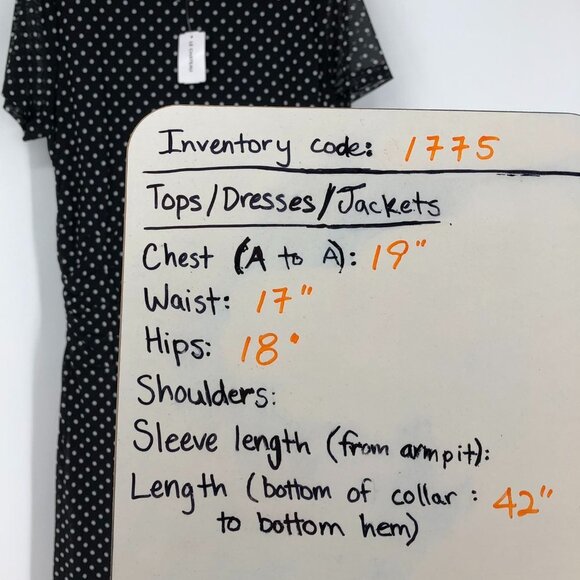 LE CHATEAU
Inventory code: 1775
Tops/Dresses/Jackets
Chest (A to A): 19"
Waist: 17"
Hips: 18"
Shoulders:
Sleeve length (from armpit):
Length (bottom of collar : 42"
to bottom hem)